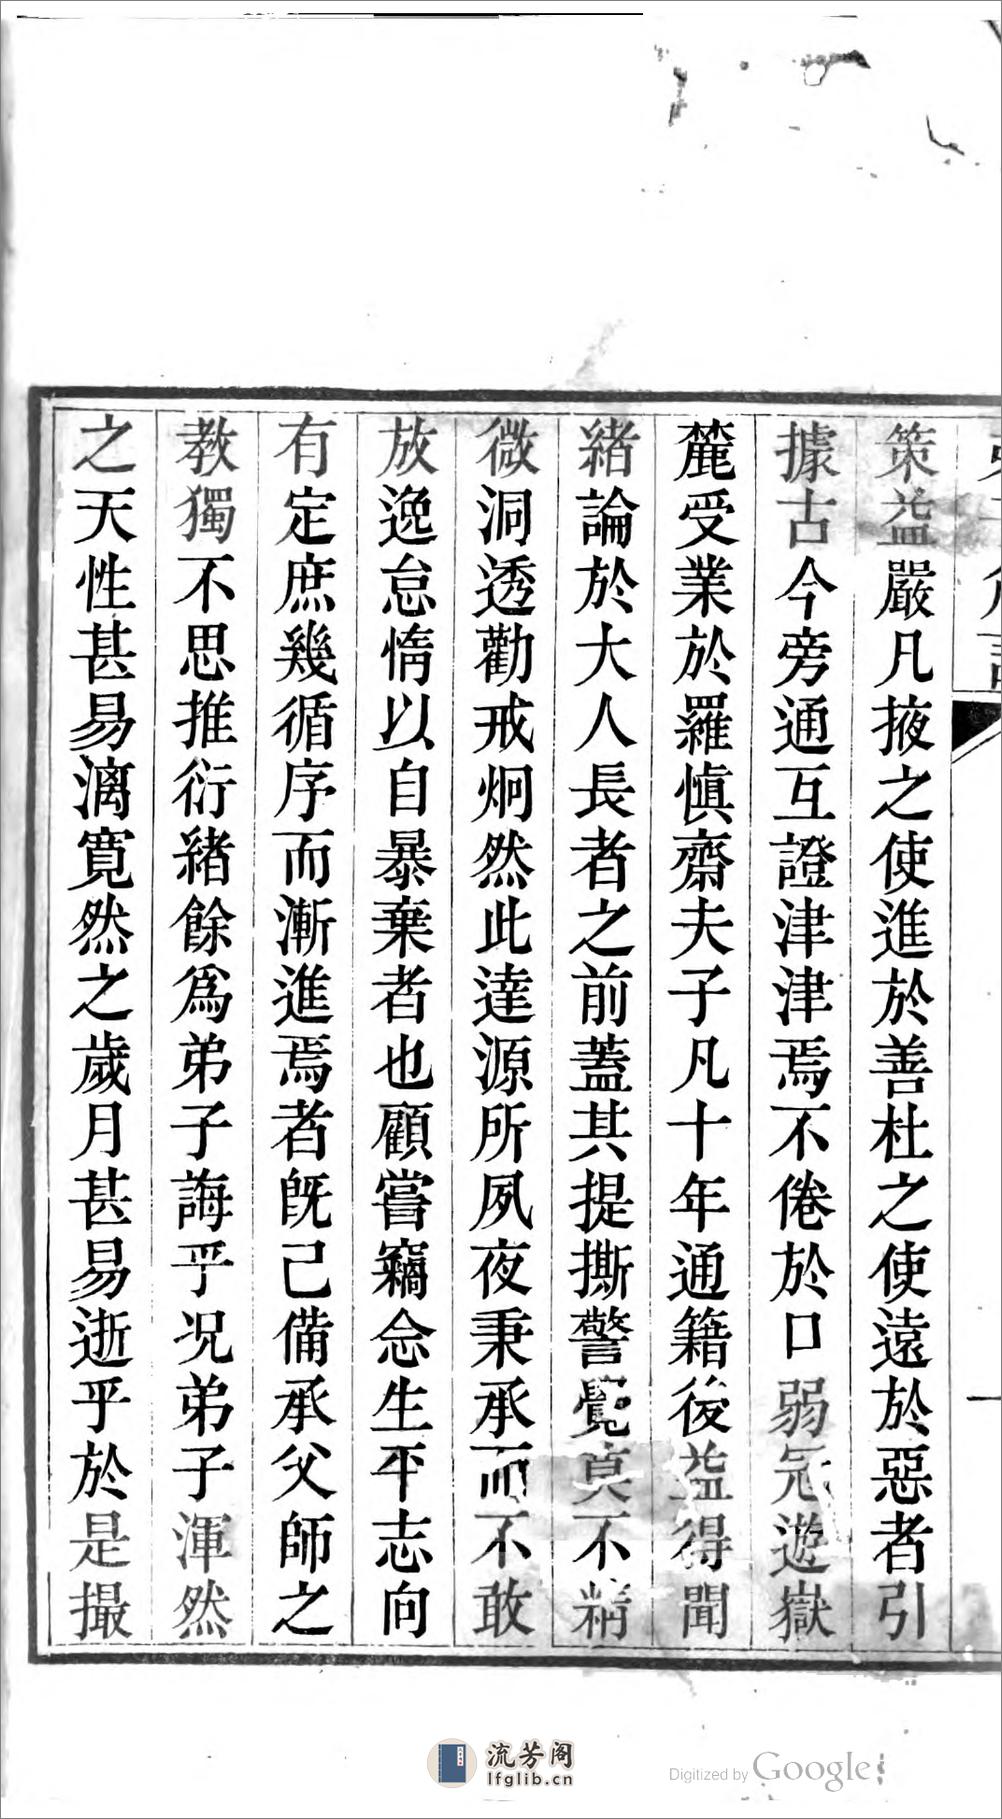 策益嚴凡掖之使進於善杜之使遠於惡者引
據古今旁通互證津津焉不倦於口弱冠遊嶽
麓受業於羅慎齋夫子凡十年通籍後益得聞
緒論於大人長者之前蓋其提撕警覺莫不精
微洞透勸戒炯然此達源所夙夜秉承而不敢
放逸怠惰以自暴棄者也顧嘗竊念生平志向
有定庶幾循序而漸進焉者旣已備承父師之
教獨不思推衍緒餘爲弟子誨乎况弟子渾然
之天性甚易漓寬然之歲月甚易逝乎於是撮
流芳阁
lfglib.cn
Digitized by Google